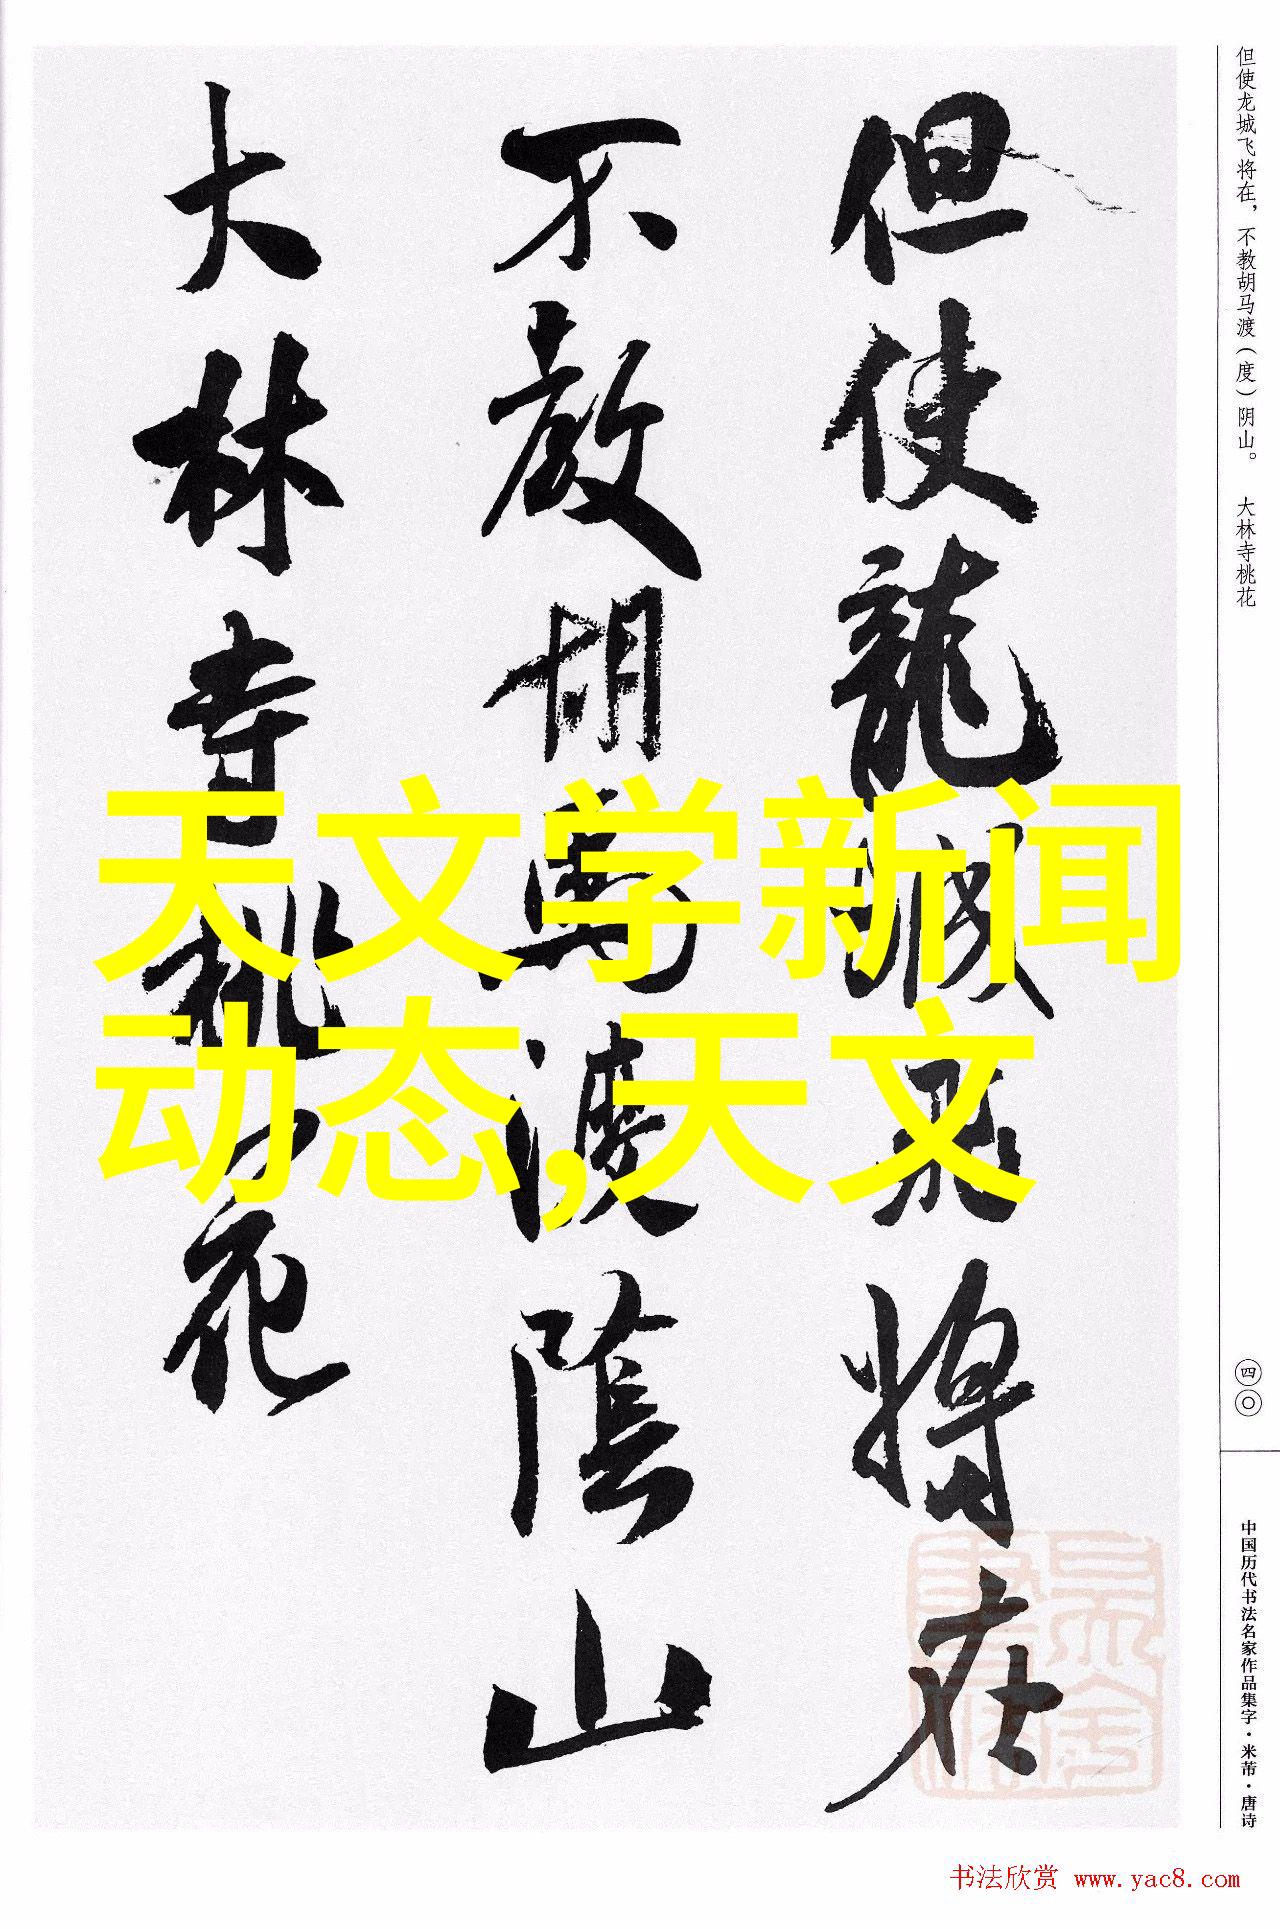 但使龍城飛將在
不教胡馬渡陰山
大林寺桃花
天文学新闻
动态,天文
但使龙城飞将在，不教胡马渡（度）阴山。　大林寺桃花
四〇
中国历代书法名家作品集字·米芾·唐诗
书法欣赏 www.yac8.com